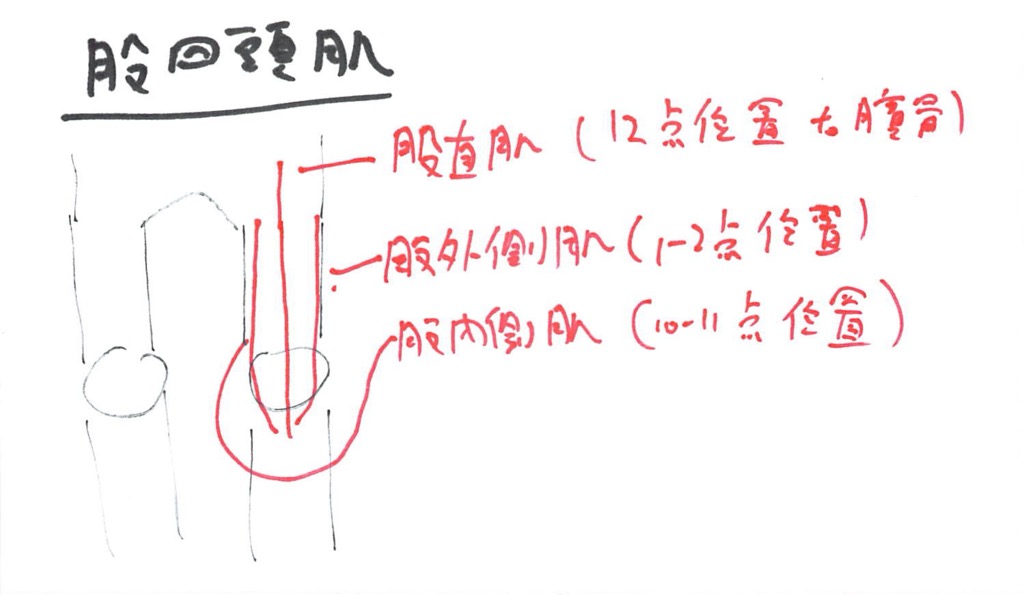 股四頭肌
股直肌 (12点位置 臏骨)
股外側肌 (1-2点位置)
股内側肌 (10-11点位置)